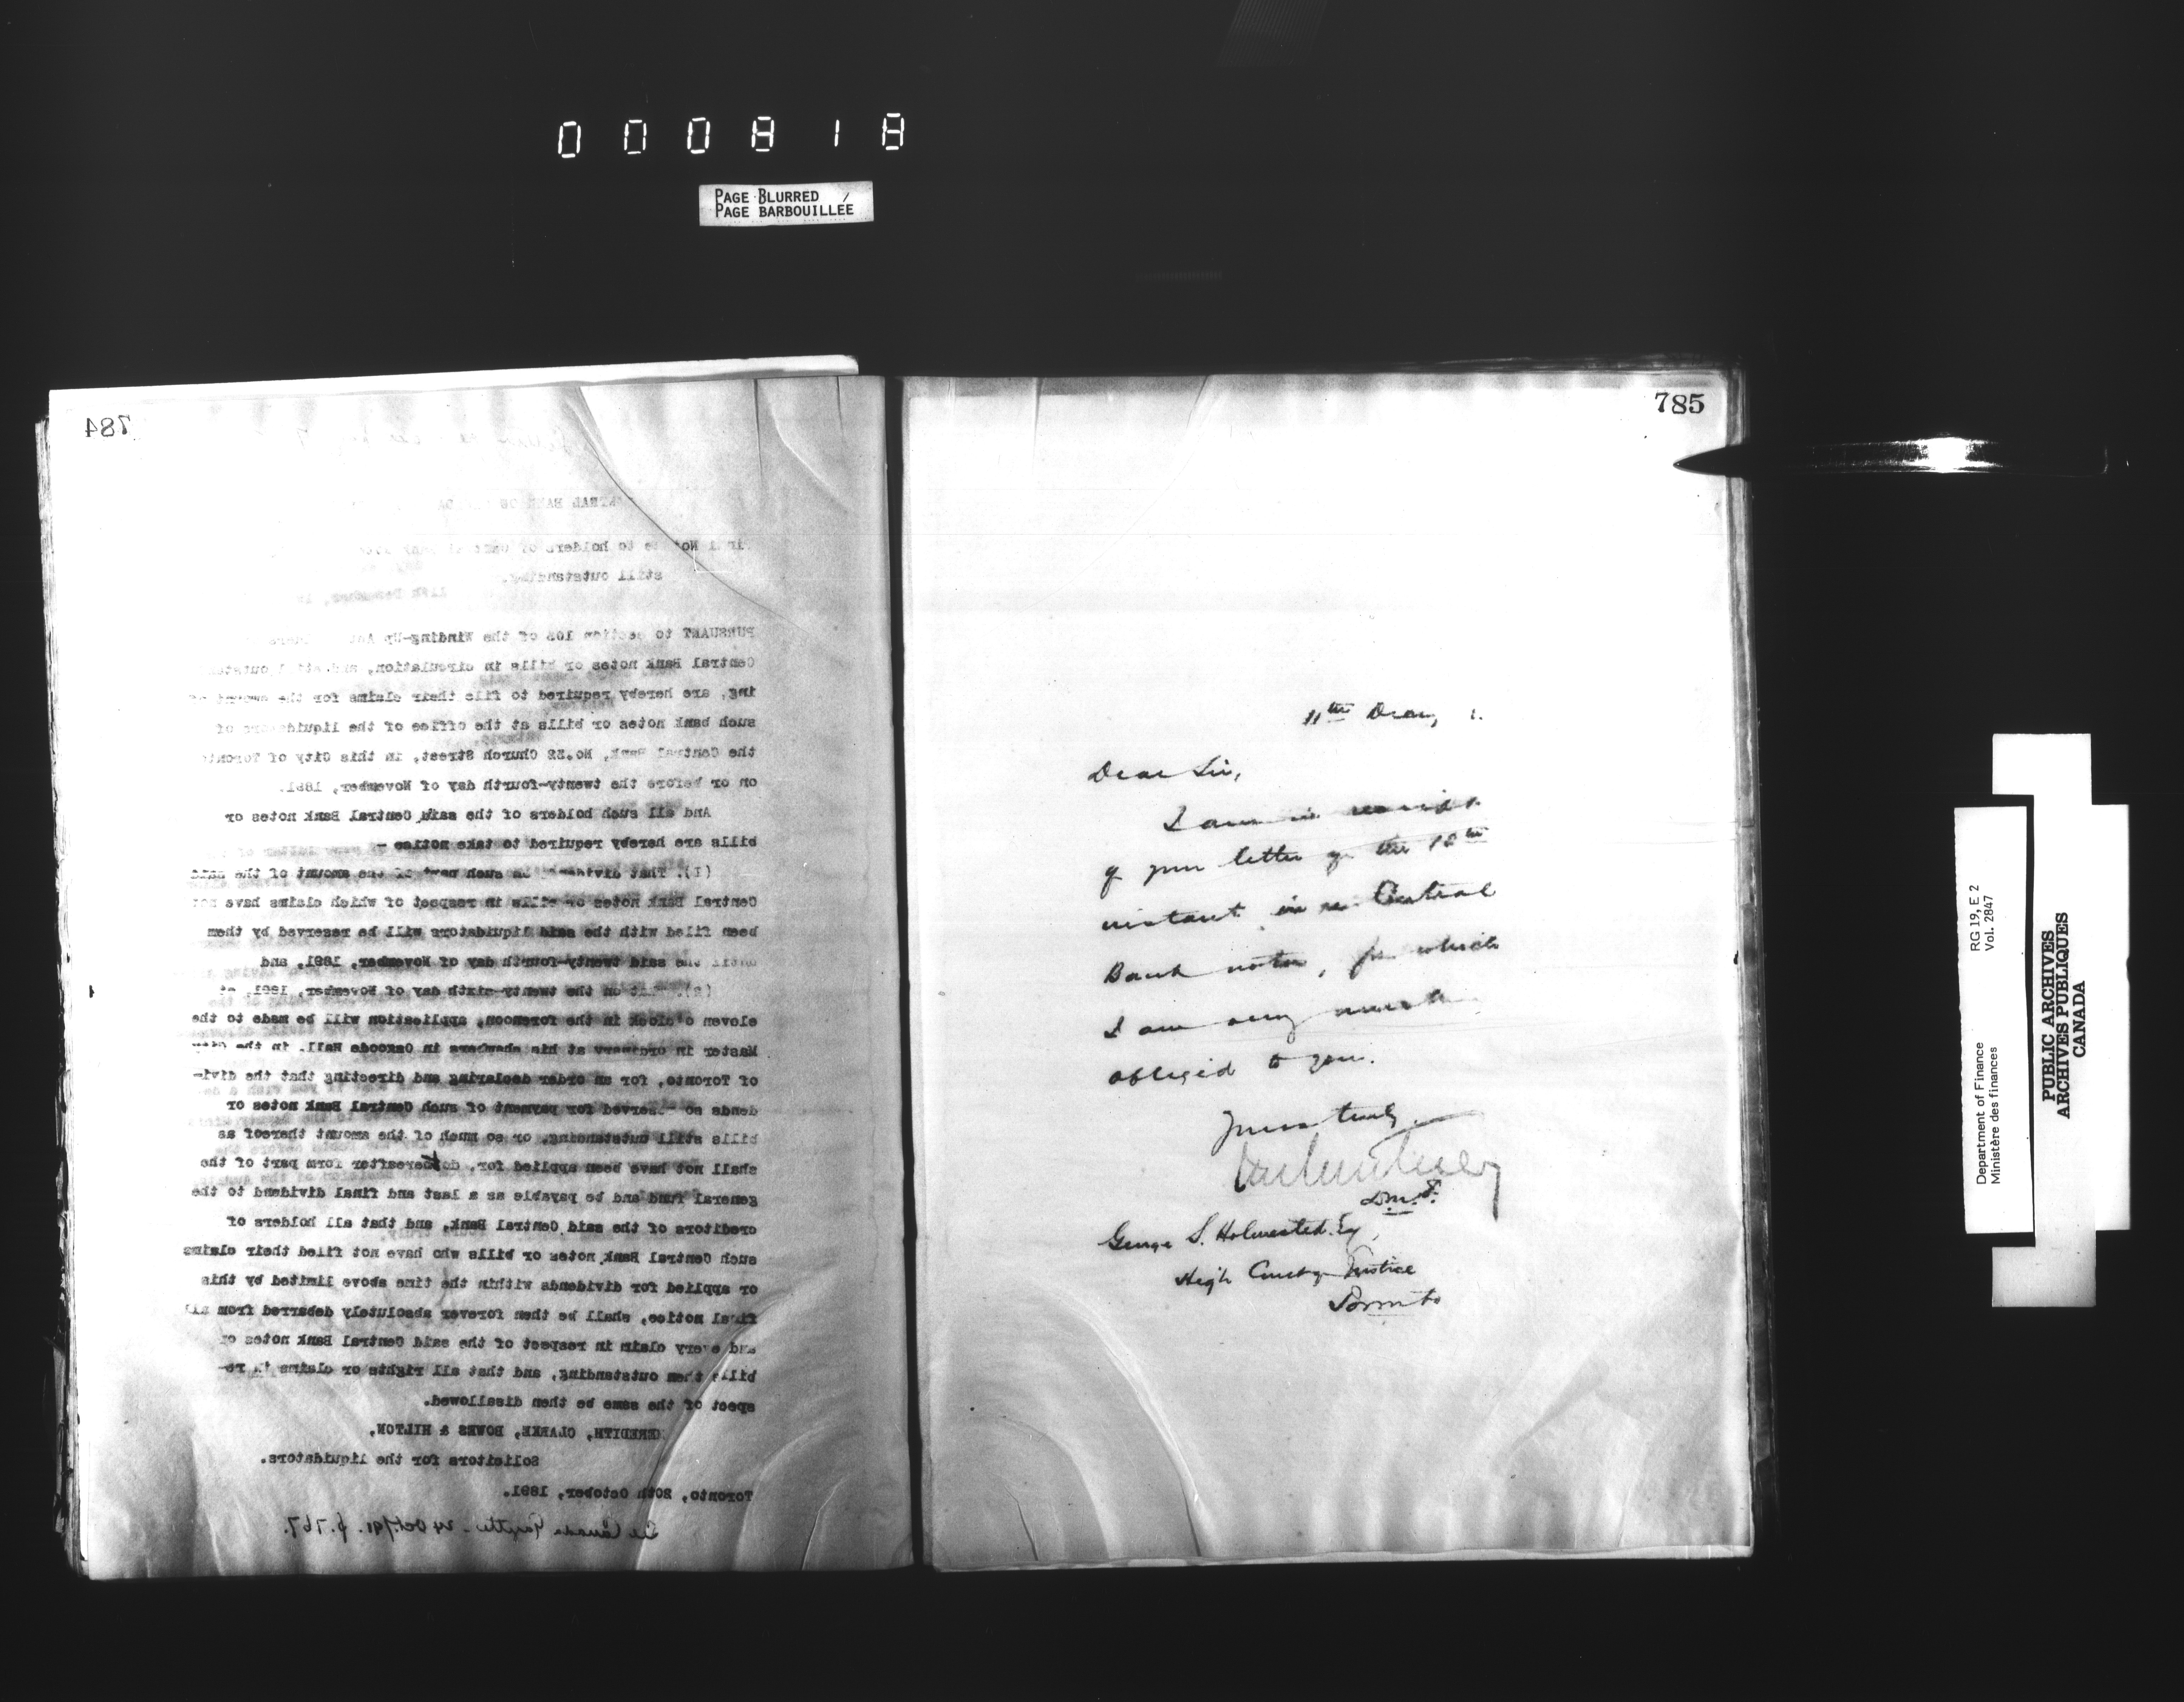 000818
PAGE BLURRED
PAGE BARBOUILLÉE
784
still outstanding.
PURSUANT to section 103 of the Winding-Up Act
Central Bank notes or bills in circulation, and still
ing, are hereby required to file their claims for the amount of
such bank notes or bills at the office of the liquidators of
the Central Bank, No.32 Church Street, in this City of Toronto
on or before the twenty-fourth day of November, 1891.
And all such holders of the said Central Bank notes or
bills are hereby required to take notice -
(1). That dividends on such part of the amount of the said
Central Bank notes or bills in respect of which claims have not
been filed with the said liquidators will be reserved by them
until the said twenty-fourth day of November, 1891, and
(2). That on the twenty-sixth day of November, 1891, at
eleven o'clock in the forenoon, application will be made to the
Master in ordinary at his chambers in Osgoode Hall, in the City
of Toronto, for an order declaring and directing that the divi-
dends so reserved for payment of such Central Bank notes or
bills still outstanding, or so much of the amount thereof as
shall not have been applied for, do thereafter form part of the
general fund and be payable as a last and final dividend to the
creditors of the said Central Bank, and that all holders of
such Central Bank notes or bills who have not filed their claims
or applied for dividends within the time above limited by this
final notice, shall be then forever absolutely debarred from all
and every claim in respect of the said Central Bank notes or
bills then outstanding, and that all rights or claims in re-
spect of the same be then disallowed.
MEREDITH, CLARKE, BOWES & HILTON,
Solicitors for the liquidators.
Toronto, 20th October, 1891.
See Canada Gazette - 24 Oct/91. p. 767.
785
11th Decr, 1.
Dear Sir,
I am in receipt
of your letter of the 10th
instant in re Central
Bank notes, for which
I am very much
obliged to you.
Yours truly
D.M.F.
George S. Holmested. Esq,
High Court of Justice
Toronto
Department of Finance RG 19, E 2
Ministère des finances Vol. 2847
PUBLIC ARCHIVES
ARCHIVES PUBLIQUES
CANADA